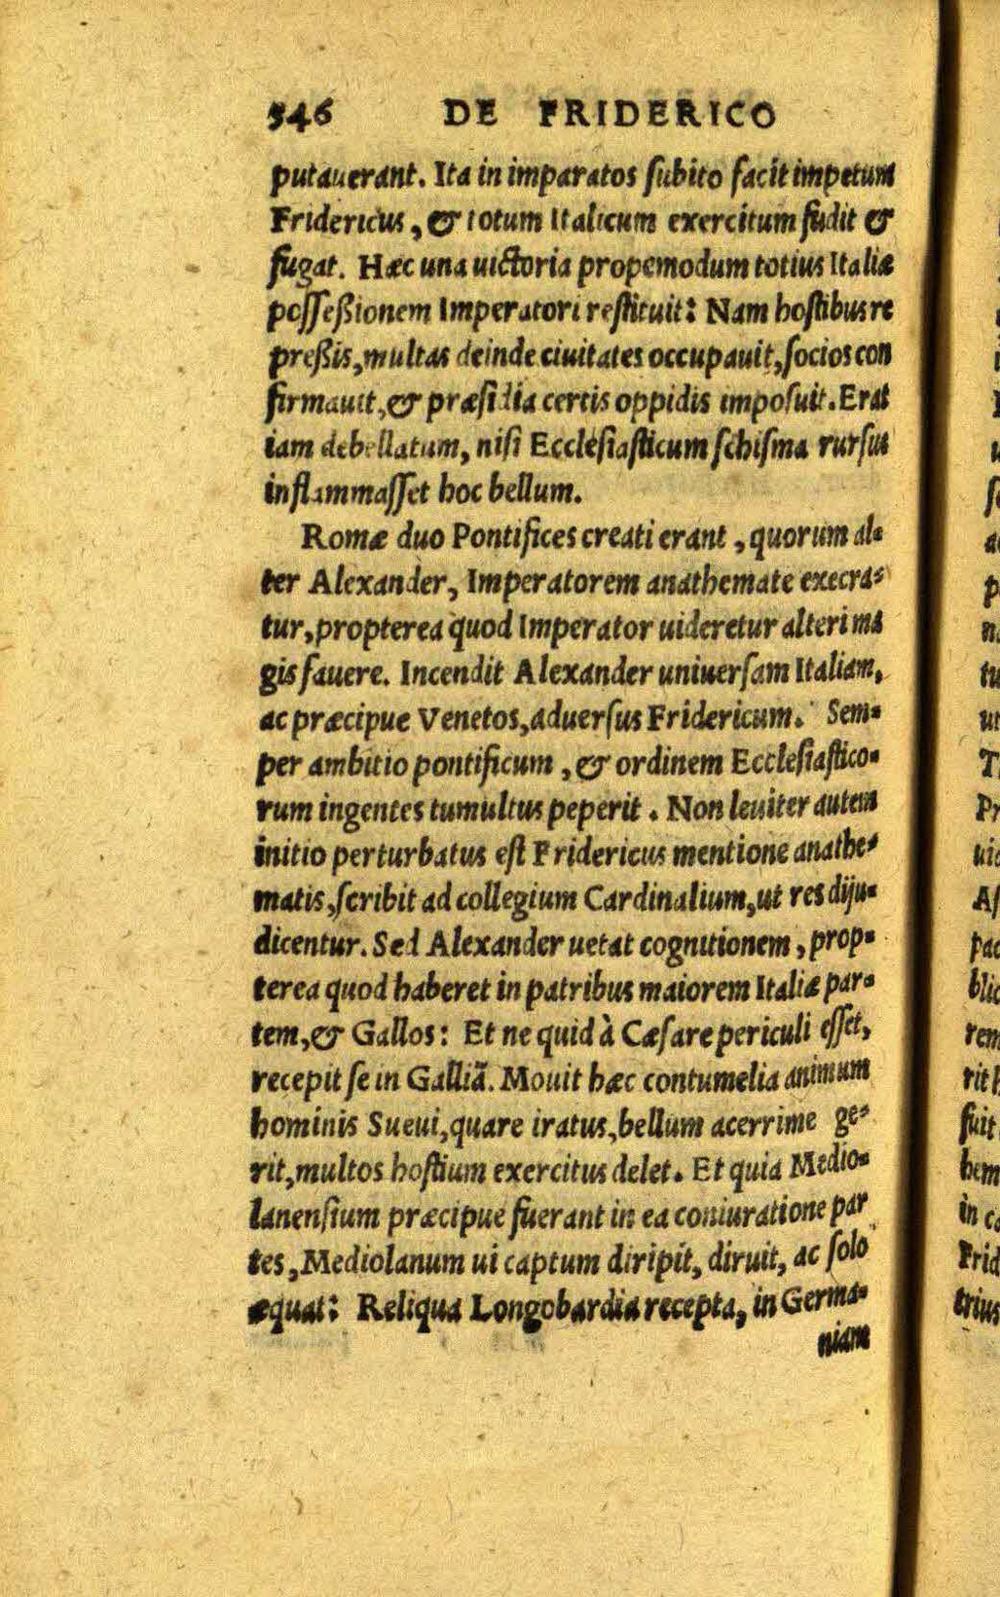 546 DE FRIDERICO
putauerant. Ita in imparatos ſubito facit impetum
Fridericus, & totum Italicum exercitum fudit &
fugat. Hæc una uictoria propemodum totius Italiæ
poſſeßionem Imperatori reſtituit: Nam hoſtibus re
preßis, multas deinde ciuitates occupauit, ſocios con
firmauit, & præſidia certis oppidis impoſuit. Erat
iam debellatum, niſi Eccleſiaſticum ſchiſma rurſus
inflammaſſet hoc bellum.
Romæ duo Pontifices creati erant, quorum al-
ter Alexander, Imperatorem anathemate execra-
tur, propterea quod Imperator uideretur alteri ma
gis fauere. Incendit Alexander uniuerſam Italiam,
ac præcipue Venetos, aduerſus Fridericum. Sem-
per ambitio pontificum, & ordinem Eccleſiaſtico-
rum ingentes tumultus peperit. Non leuiter autem
initio perturbatus eſt Fridericus mentione anathe-
matis, ſcribit ad collegium Cardinalium, ut res diju-
dicentur. Sed Alexander uetat cognitionem, prop-
terea quod haberet in patribus maiorem Italiæ par-
tem, & Gallos: Et ne quid à Cæſare periculi eſſet,
recepit ſe in Galliã. Mouit hæc contumelia animum
hominis Sueui, quare iratus, bellum acerrime ge-
rit, multos hoſtium exercitus delet. Et quia Medio-
lanenſium præcipue fuerant in ea coniuratione par
tes, Mediolanum ui captum diripit, diruit, ac ſolo
æquat: Reliqua Longobardia recepta, in Germa-
niam